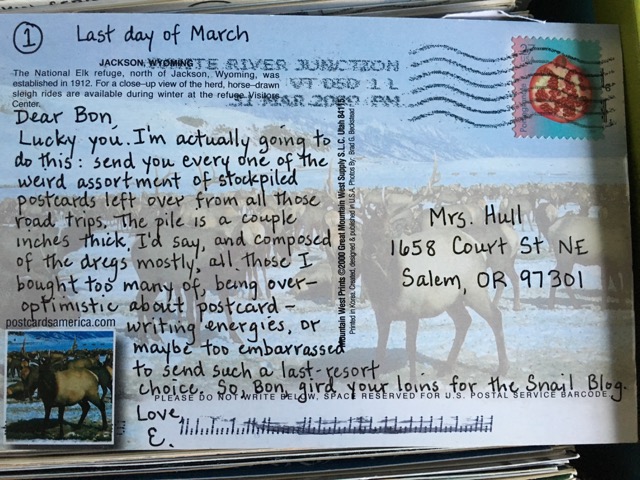 1 Last day of March
JACKSON, WYOMING
The National Elk refuge, north of Jackson, Wyoming, was
established in 1912. For a close-up view of the herd, horse-drawn
sleigh rides are available during winter at the refuge Visitors
Center.
WHITE RIVER JUNCTION
VT 050 1 L
31 MAR 2020 PM
Dear Bon,
Lucky you. I'm actually going to
do this: send you every one of the
weird assortment of stockpiled
postcards left over from all those
road trips. The pile is a couple
inches thick, I'd say, and composed
of the dregs mostly, all those I
bought too many of, being over-
optimistic about postcard-
writing energies, or
maybe too embarrassed
to send such a last-resort
choice. So, Bon, gird your loins for the Snail Blog.
Love,
E.
postcardsamerica.com
Mountain West Prints ©2000 Great Mountain West Supply S.L.C. Utah 84115
Printed in Korea. Created, designed & published in U.S.A. Photos By: Brad G.
Mrs. Hull
1658 Court St NE
Salem, OR 97301
PLEASE DO NOT WRITE BELOW, SPACE RESERVED FOR U.S. POSTAL SERVICE BARCODE.